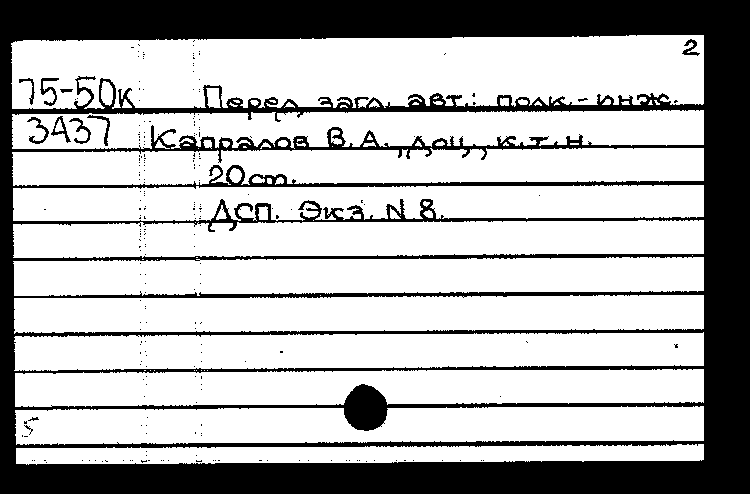 2
75-50к Перед загл. авт.: полк.-инж.
3437 Капралов В.А., доц., к.т.н.
20 cm.
ДСП. Экз. N 8.
5